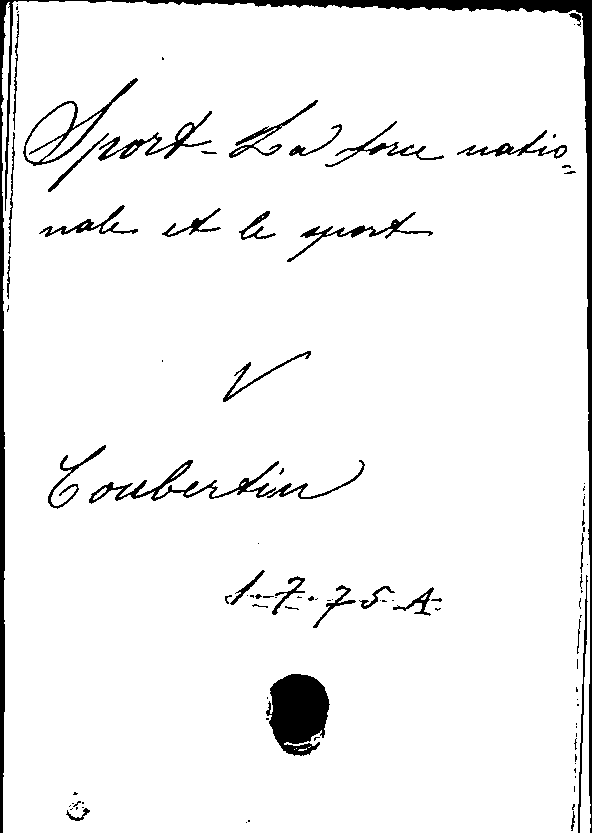 Sport - La force natio=
nale et le sport
V
Coubertin
1.7.75 A